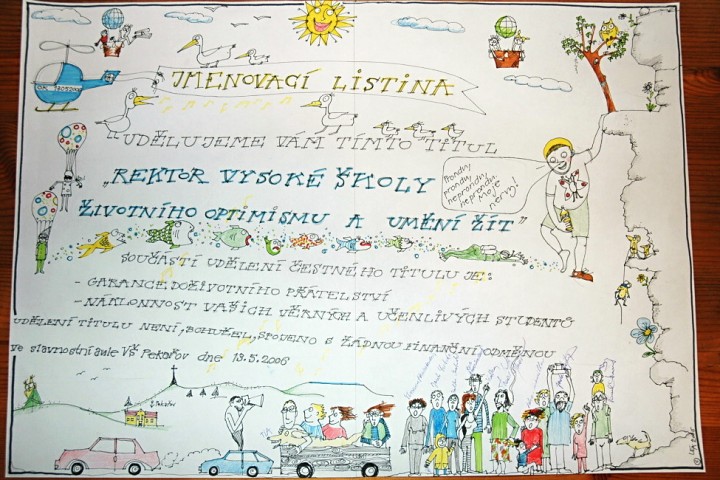 JMENOVACÍ LISTINA
UDĚLUJEME VÁM TÍMTO TITUL
„REKTOR VYSOKÉ ŠKOLY
ŽIVOTNÍHO OPTIMISMU A UMĚNÍ ŽÍT"
Prondri,
prondri,
neprondri,
neprondri,
Moje
nervy!
SOUČÁSTÍ UDĚLENÍ ČESTNÉHO TITULU JE:
- GARANCE DOŽIVOTNÍHO PŘÁTELSTVÍ
- NÁKLONNOST VAŠICH VĚRNÝCH A UČENLIVÝCH STUDENTŮ
UDĚLENÍ TITULU NENÍ, BOHUŽEL, SPOJENO S ŽÁDNOU FINANČNÍ ODMĚNOU
ve slavnostní aule VŠ Pekařov dne 13.5.2006